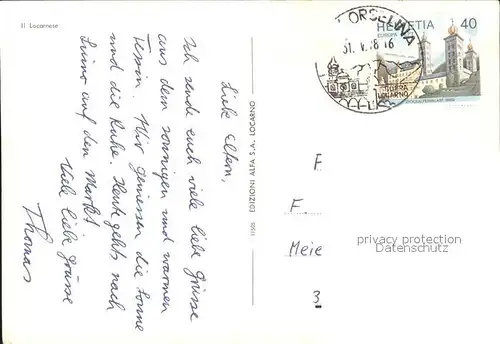 Il Locarnese
Liebe Eltern,
Ich sende euch viele liebe Grüsse
aus dem sonnigen und warmen
Tessin. Wir geniessen die Sonne
und die Ruhe. Heute gehts nach
Luino auf den Markt.
Viele liebe Grüsse
Thomas
EDIZIONI ALFA S.A., LOCARNO
ORSELINA
31. V. 78 16
SOPRA
LOCARNO
HELVETIA 40
EUROPA
F
F.
Meie
3
privacy protection
watermark
DelCampe.net